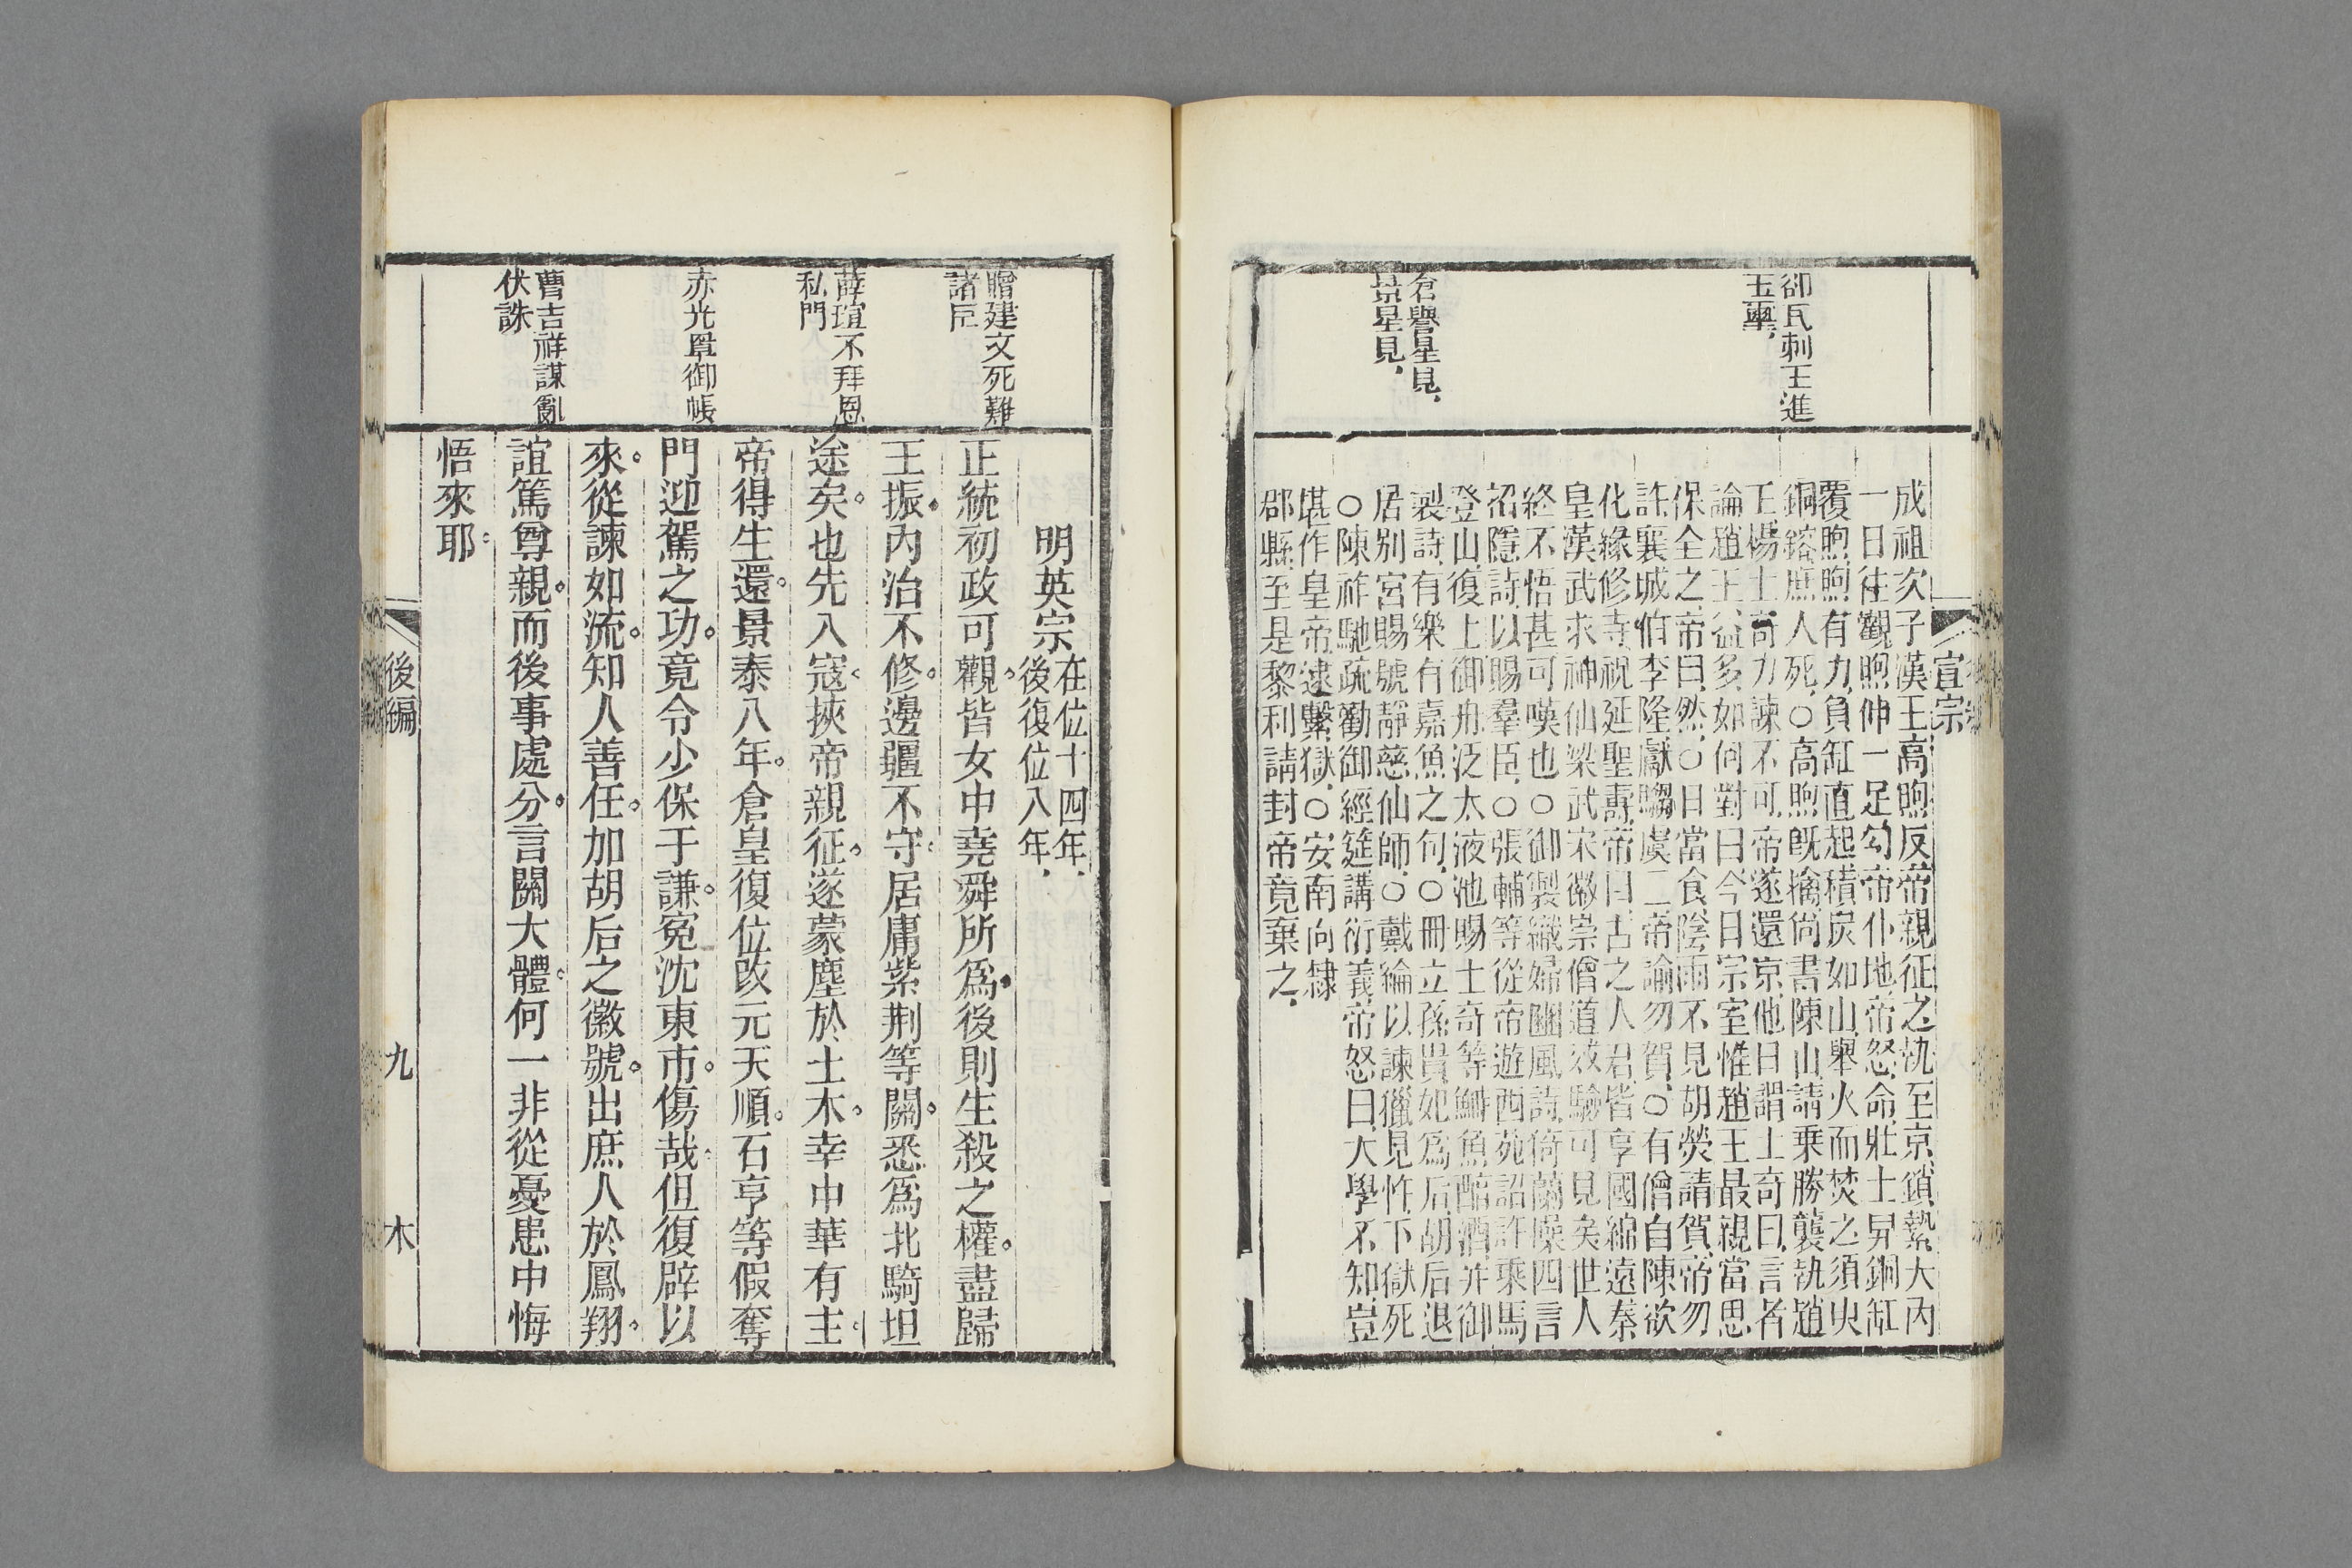 卻瓦剌王進
玉璽、
含譽星見、
景星見、
宣宗
成祖次子漢王高煦反帝親征之執至京鎖縶大內
一日往觀煦伸一足勾帝仆地帝怒命壯士舁銅缸
覆煦煦有力負缸直起積炭如山舉火而焚之須臾
銅鎔庶人死○高煦旣擒尙書陳山請乗勝襲執趙
王楊士奇力諫不可帝遂還京他日謂士奇曰言者
論趙王益多如何對曰今日宗室惟趙王最親當思
保全之帝曰然○日當食陰雨不見胡濙請賀帝勿
許襄城伯李隆獻騶虞二帝諭勿賀○有僧自陳欲
化緣修寺祝延聖壽帝曰古之人君皆享國綿遠秦
皇漢武求神仙梁武宋徽崇僧道效驗可見矣世人
終不悟甚可嘆也○御製織婦圖風詩倚蘭操四言
招隱詩以賜羣臣○張輔等從帝遊西苑詔許乘馬
登山復上御舟泛太液池賜士奇等鰣魚醅酒并御
製詩有樂有嘉魚之句○冊立孫貴妃爲后胡后退
居别宮賜號靜慈仙師○戴綸以諫獵見忤下獄死
○陳祚馳疏勸御經筵講衍義帝怒曰大學不知豈
堪作皇帝逮繫獄○安南向隸
郡縣至是黎利請封帝竟棄之、
贈建文死難
諸臣
薛瑄不拜恩
私門
赤光罩御帳
曹吉祥謀亂
伏誅
明英宗在位十四年、後復位八年、
正統初政可觀皆女中堯舜所爲後則生殺之權盡歸
王振內治不修邊疆不守居庸紫荆等關悉爲北騎坦
途矣也先入寇挾帝親征遂蒙塵於土木幸中華有主
帝得生還景泰八年倉皇復位改元天順石亨等假奪
門迎駕之功竟令少保于謙寃沈東市傷哉但復辟以
來從諫如流知人善任加胡后之徽號出庶人於鳳翔
誼篤尊親而後事處分言關大體何一非從憂患中悔
悟來耶
後編
九
木